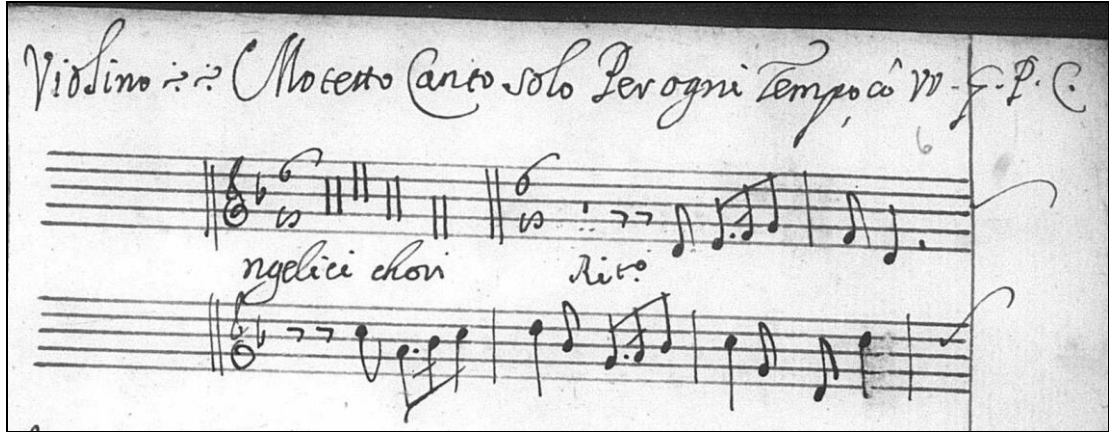 Violino Motetto Canto solo Per ogni Tempo, cô VV. G. P. C.
6
ngelici chori Rit:º